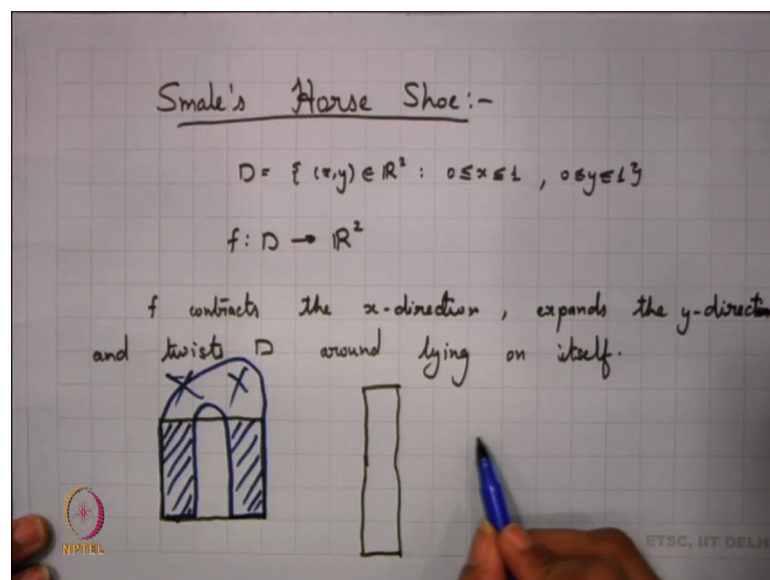 Smale's Horse Shoe:-
D = { (x,y) ∈ ℝ² : 0 ≤ x ≤ 1 , 0 ≤ y ≤ 1 }
f : D → ℝ²
f contracts the x-direction , expands the y-direction
and twists D around lying on itself.
NPTEL
ETSC, IIT DELH